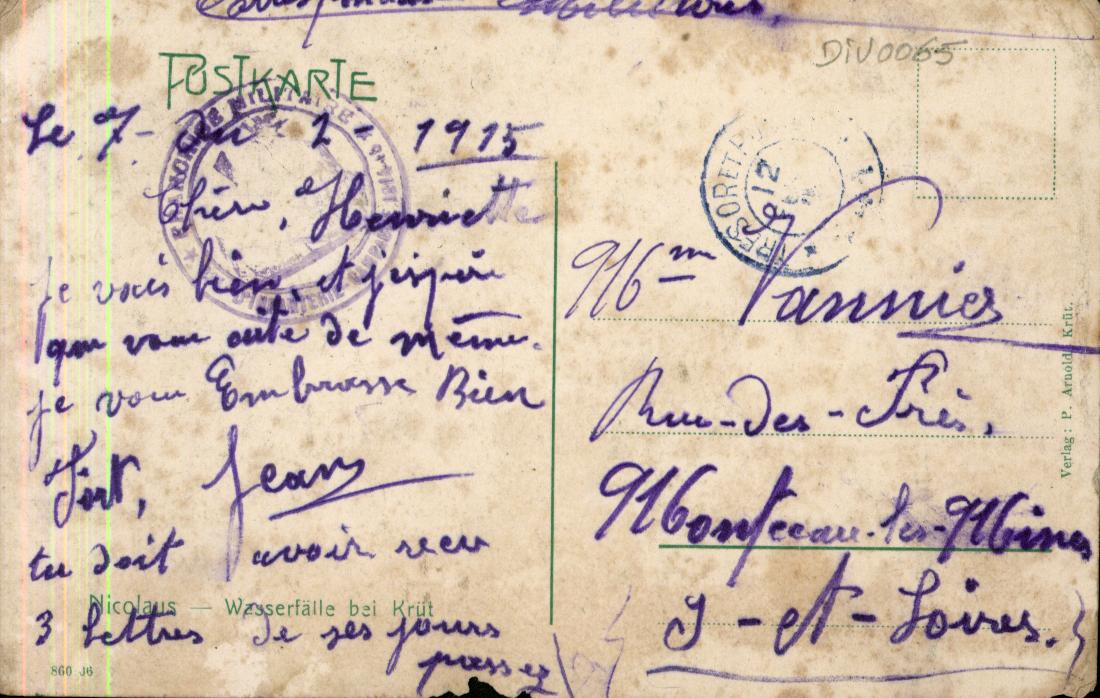 Correspondance Militaires,
DIV0065
POSTKARTE
Le 7 - Du 2 - 1915
Chère, Henriette
je vais bien, et j'espère
que vous aite de même.
je vous Embrasse Bien
Fort, Jean
tu doit avoir recu
Nicolaus — Wasserfälle bei Krüt
3 lettres de ses jours
passez
860 J6
TRESOR ET
12
Mme Vannier
Rue-des-Près.
Montceau-les-Mines
S-et-Loires.
Verlag: P. Arnold, Krüt.